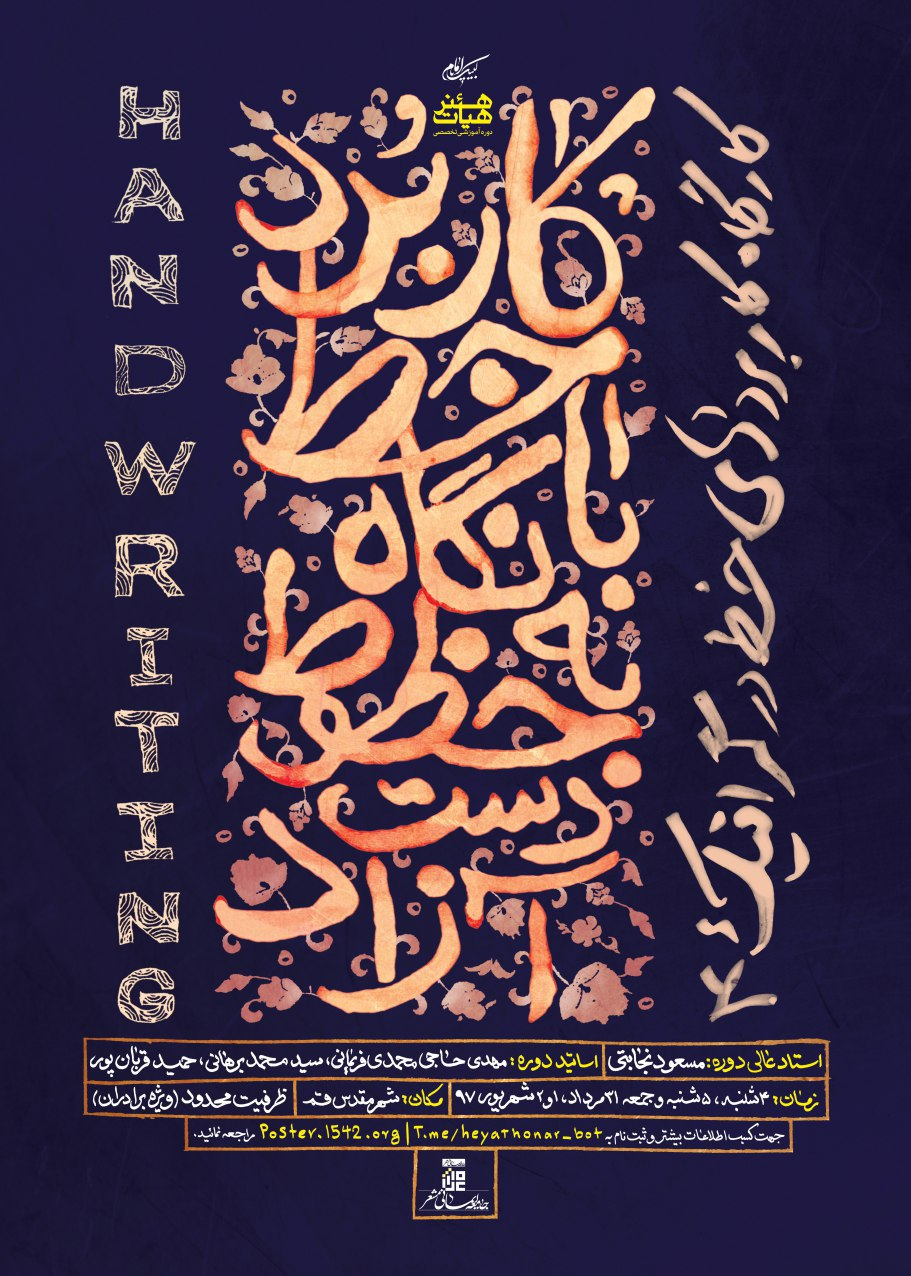 لبیک یا امام
هیأت هنر
دوره آموزشی تخصصی
کاربرد
خط
با نگاه
به خط
خط
دست
آزاد
HANDWRITING
کارگاه کاربردی خط در گرافیک ۴
استاد عالی دوره: مسعود نجابتی
اساتید دوره: مهدی حاجی محمدی فریمانی، سید محمد برهانی، حمید قربان پور
زمان: ۴شنبه، ۵شنبه و جمعه ۳۱ مرداد، ۱و۲ شهریور ۹۷
مکان: شهر مقدس قم
ظرفیت محدود (ویژه برادران)
جهت کسب اطلاعات بیشتر و ثبت نام به Poster.1542.org | T.me/heyathonar_bot راجعه نمائید.